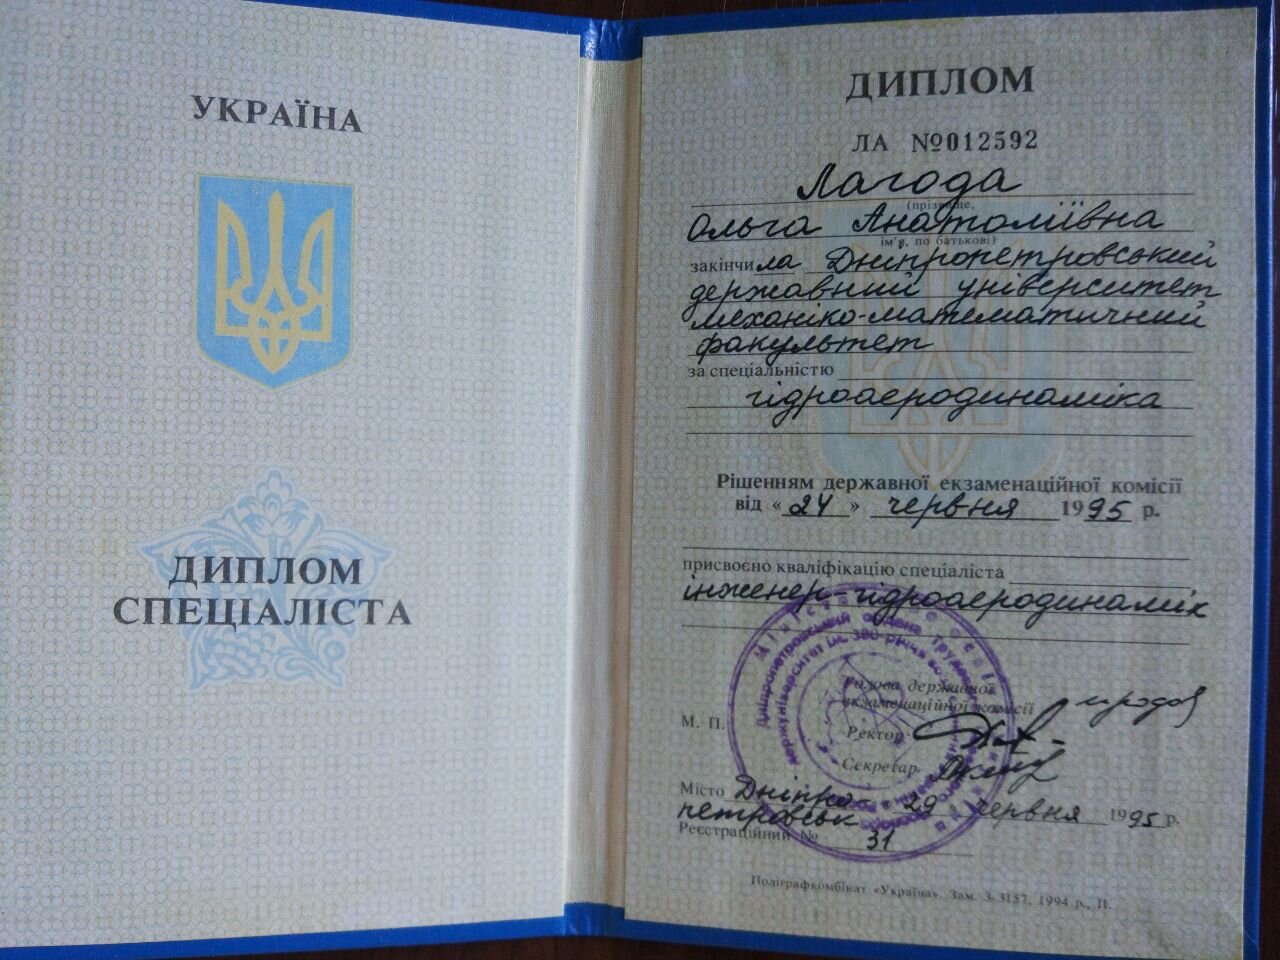 УКРАЇНА
ДИПЛОМ
СПЕЦІАЛІСТА
ДИПЛОМ
ЛА №012592
Лагода
(прізвище,
Ольга Анатоліївна
ім'я, по батькові)
закінчила Дніпропетровський
державний університет
механіко-математичний
факультет
за спеціальністю
гідроаеродинаміка
Рішенням державної екзаменаційної комісії
від «24» червня 1995 р.
присвоєно кваліфікацію спеціаліста
інженер-гідроаеродинамік
Голова державної
екзаменаційної комісії
М. П.
Ректор
Секретар
Місто Дніпро 29 червня 1995 р.
петровськ
Реєстраційний № 31
Поліграфкомбінат «Україна». Зам. 3-3157, 1994 р., II.